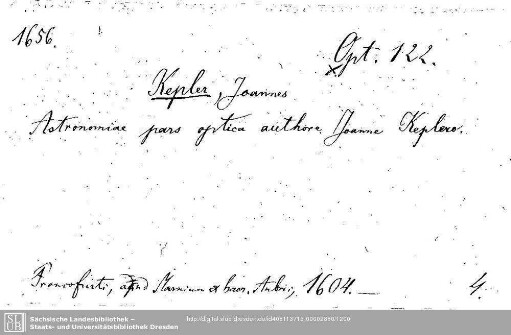 1656.
Opt. 122.
Kepler, Joannes
Astronomiae pars optica authore Joanne Keplero.
Francofurti, apud Marnium et haer. Aubrii, 1604. — 4.
SLUB
Sächsische Landesbibliothek –
Staats- und Universitätsbibliothek Dresden